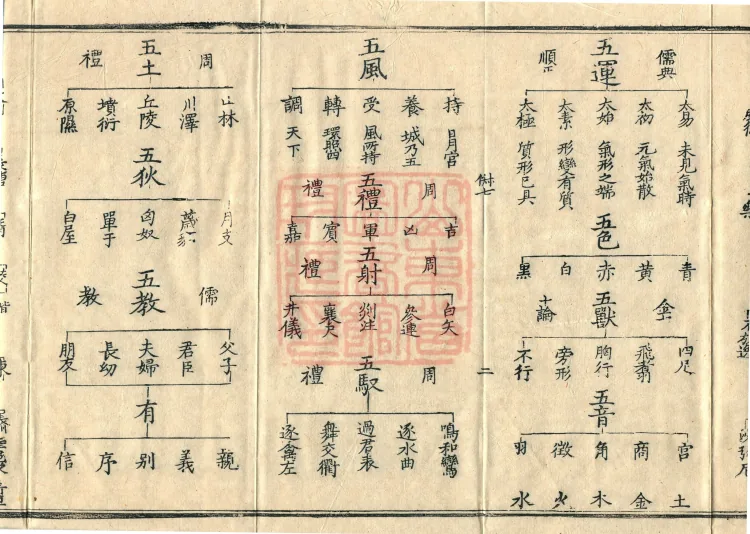 儒典
五運
順正
太易 未見氣時
太初 元氣始散
太始 氣形之端
太素 形變有質
太極 質形已具
五色
青
黃
赤
白
黑
五獸
十論
四足
飛翥
胸行
旁形
不行
五音
宮 土
商 金
角 木
徵 火
羽 水
二
五風
持
養 城乃五
受 風所持
轉 環照四
調 天下
周
五禮
禮
吉
凶
軍
賓
嘉
周
五射
禮
白矢
參連
剡注
襄尺
井儀
周
五馭
禮
鳴和鸞
逐水曲
過君表
舞交衢
逐禽左
周
五土
禮
山林
川澤
丘陵
墳衍
原隰
五狄
月支
匈奴
單于
白屋
儒
五教
教
父子
君臣
夫婦
長幼
朋友
有
親
義
別
序
信